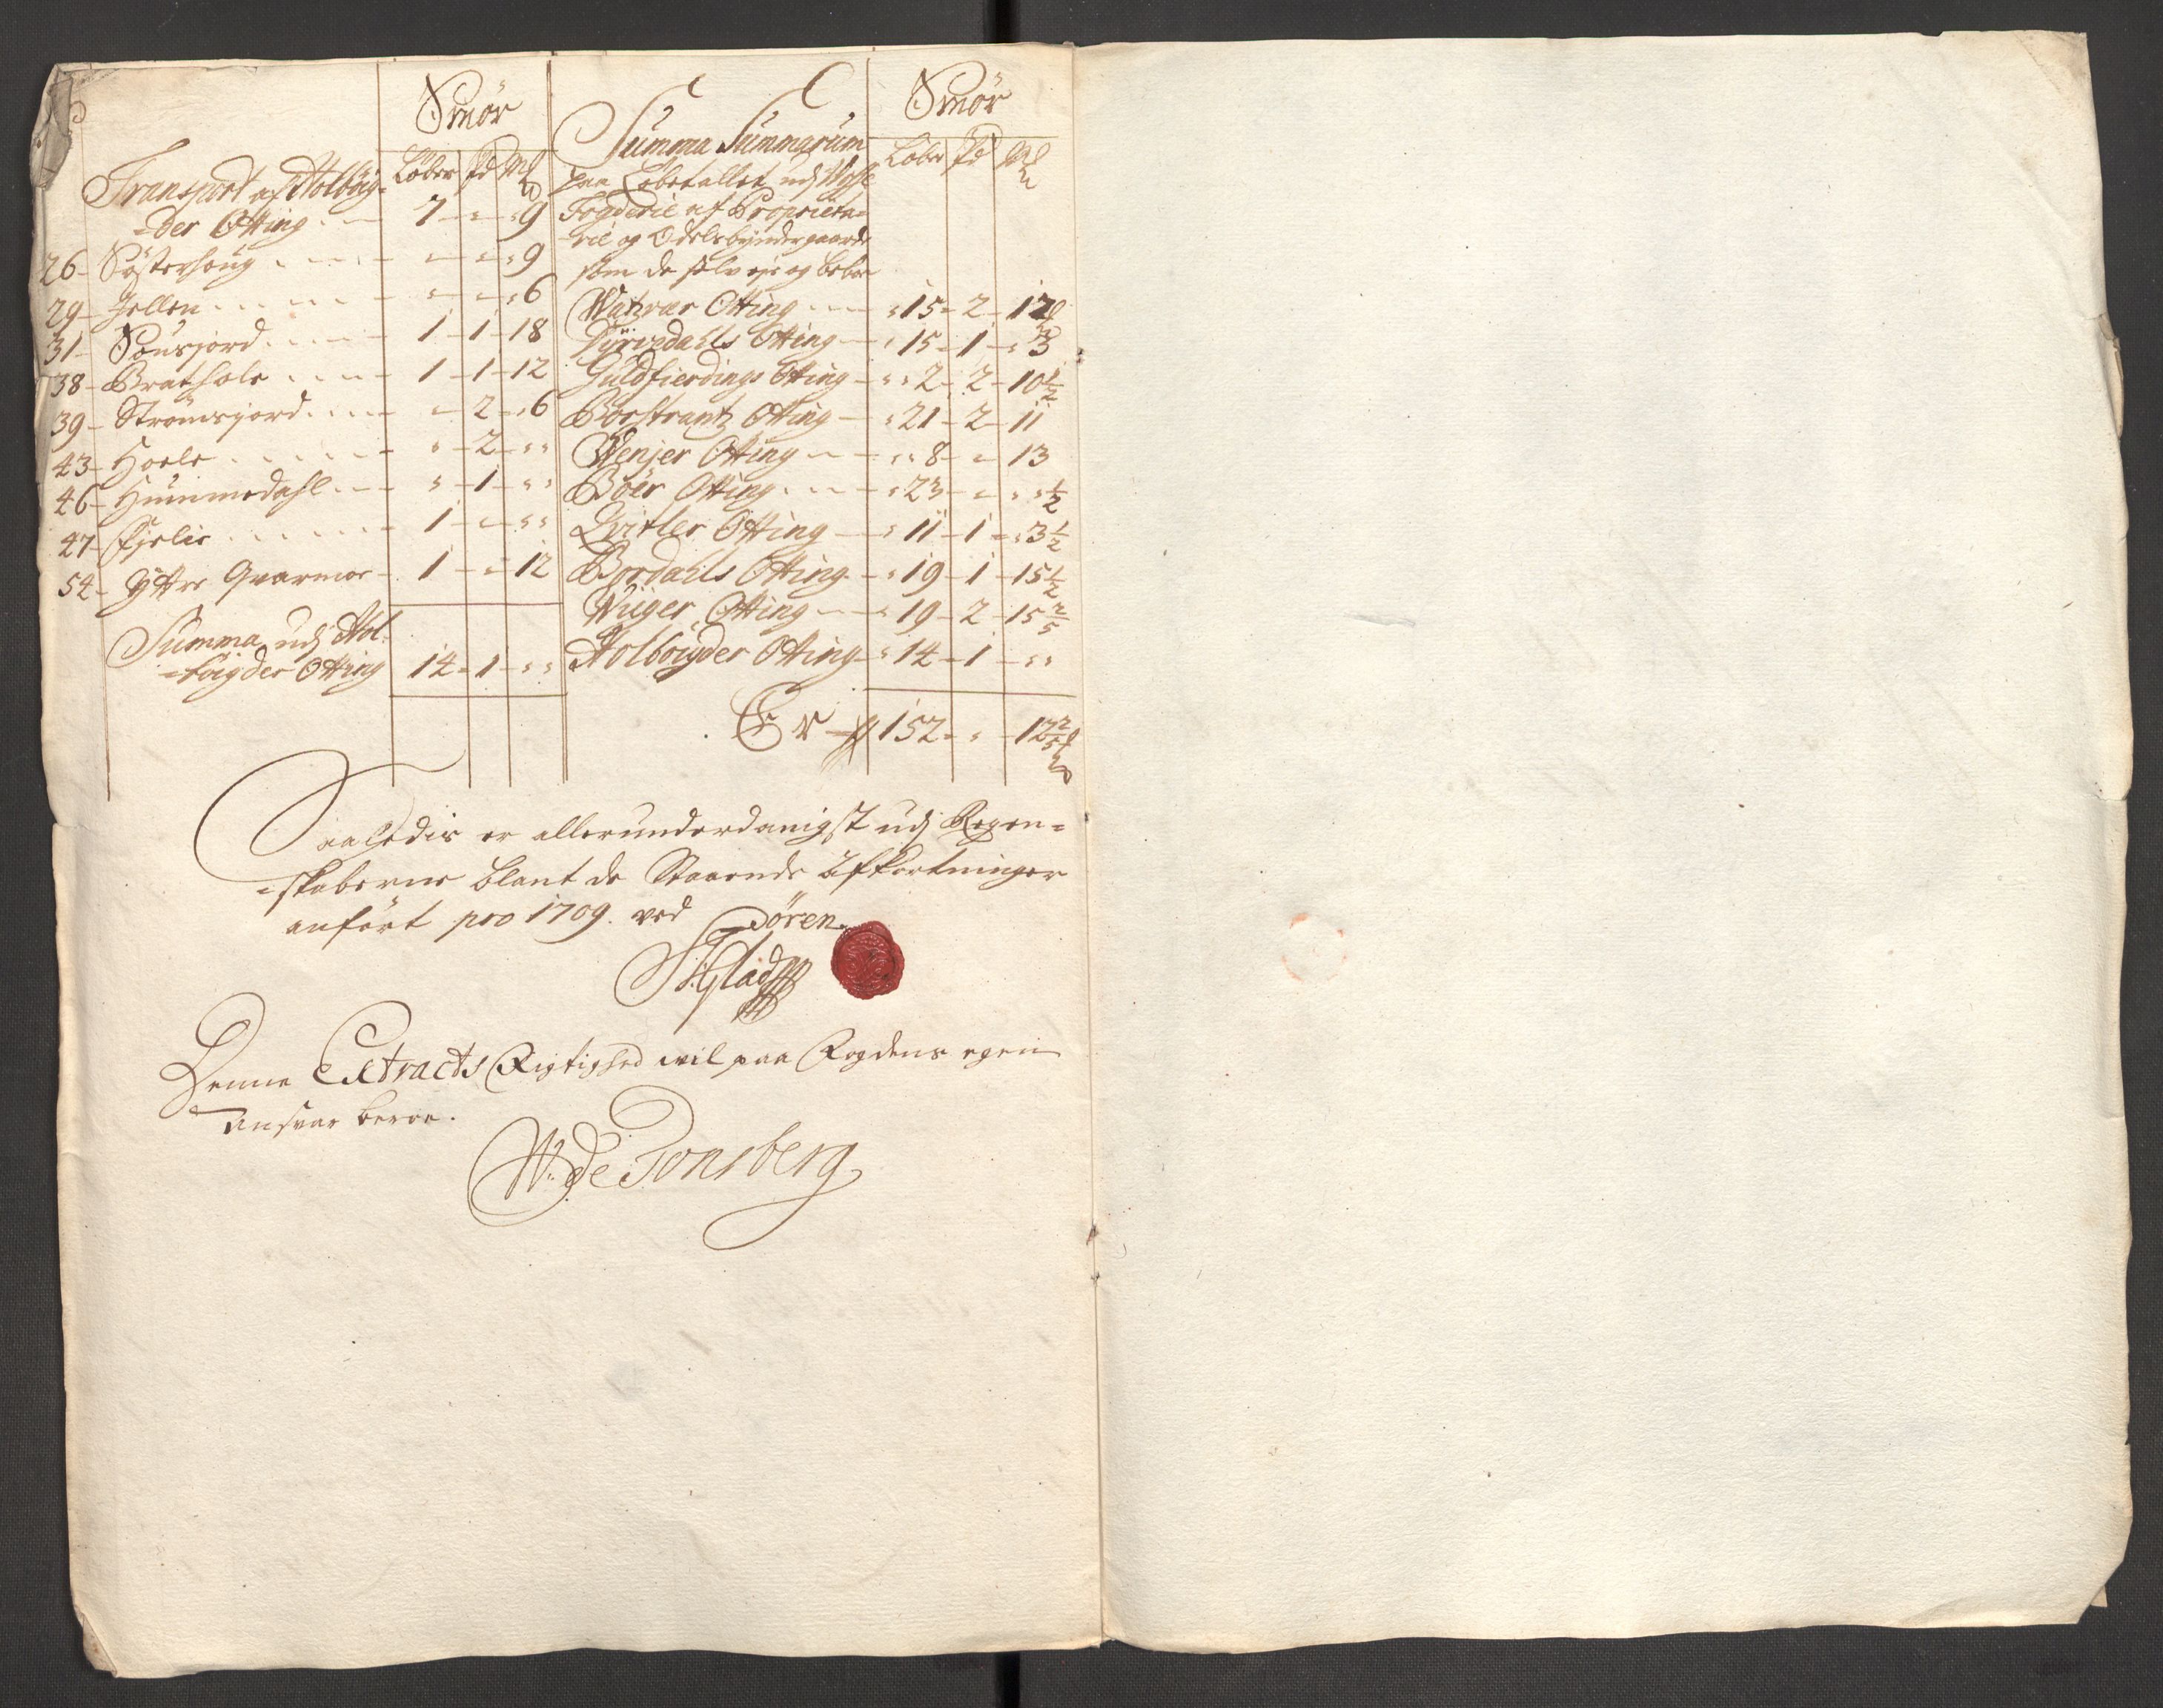 Smör
Løber Pd Mk
Transport af Holböig=
=der Otting 7 - " - " 9
26 - Söfterhoug " - " - " 9
29 - Jellen " - " - " 6
31 - Sousjord 1 - 1 - 18
38 - Brathole 1 - 1 - 12
39 - Strömsjord " - 2 - " 6
43 - Hoele " - 2 - " "
46 - Hummedahl " - 1 - " "
47 - Fjelie 1 - " - " "
54 - Ÿttre Qvarmoe 1 - " - 12
Summa udj Hol=
=böigder Otting 14 - 1 - " "
Smör
Summa Summarum
Løber Pd Mk
paa Løbetallet udj Wosse
Fogderie af Proprieta=
rie og Odelsbønder gaarde
som de selv eje og beboe
Watzvær Otting " 15 - 2 - 12
Dÿrvedahls Otting " 15 - 1 - " 3
Guldfierdings Otting " " 2 - 2 - 10 1/2
Borstrantz Otting " 21 - 2 - 11
Wenjer Otting " " 8 - " - 13
Böer Otting " 23 - " - " " 1/2
Qvitler Otting " 11 - 1 - " 3 1/2
Bordahls Otting " 19 - 1 - 15 1/2
Wiiger Otting " 19 - 2 - 15 2/5
Holboigder Otting " 14 - 1 - " "
Er 152 - " - 12 2/5
Saaledis er allerunderdanigst udj Regen=
=skaberne blant de Staaende Afkortninger
anført pro 1709. ved Sören
Glad
Denne Extracts Rigtighed vil paa Fogdens egen
ansvar beroe.
W: de Tonsberg